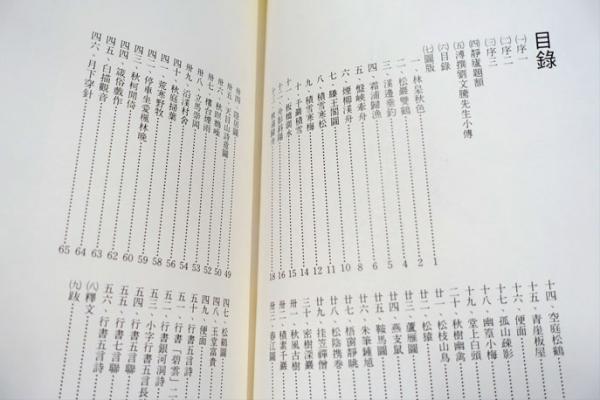 目錄
㈠序一
㈡序二
㈢序三
㈣靜廬題額
㈤溥撰劉文騰先生小傳
㈥目錄
㈦圖版
一．林泉秋色 1
二．松巖雙鶴 2
三．溪邊垂釣 4
四．霜浦歸漁 5
五．盤峽牽舟 6
六．煙柳溪舟 8
七．滕王閣圖 10
八．積雪寒松 11
九．積雪寒梅 12
十．千巖積雪 14
十一．板橋澗水 15
十四．空庭松鶴
十五．青崖板屋
十六．便面
十七．孤山疎影
十八．幽篁小梅
十九．堂上白頭
二十．秋樹幽禽
廿一．松枝山鳥
廿二．松猿
廿三．蘆雁圖
廿四．燕支鼠
廿五．鞍馬圖
廿六．朱筆鍾馗
廿七．梧窗靜眺
廿八．松陰携卷
廿九．挂笠禪僧
三十．密樹深巖
卅一．秋風古樹
卅二．積素千巖
卅三．春江圖
卅五．天目山詩意圖 50
卅八．立馬崇岡 53
卅九．沿溪村舍 54
四十．秋庭掃葉 56
四一．荒寒野牧 58
四二．停車坐愛楓林晚 59
四三．秋柯閒倚 60
四四．箴俗戲作 62
四五．白描觀音 63
四六．月下穿針 64
65
四七．松鶴圖
四八．玉堂富貴
四九．便面
五十．行書五言詩
五一．行書「碧雲」二
五二．行書銀河洞詩
五三．小字行書五言長
五四．行書五言聯
五五．行書七言聯
五六．行書五言詩
㈧釋文
㈨跋